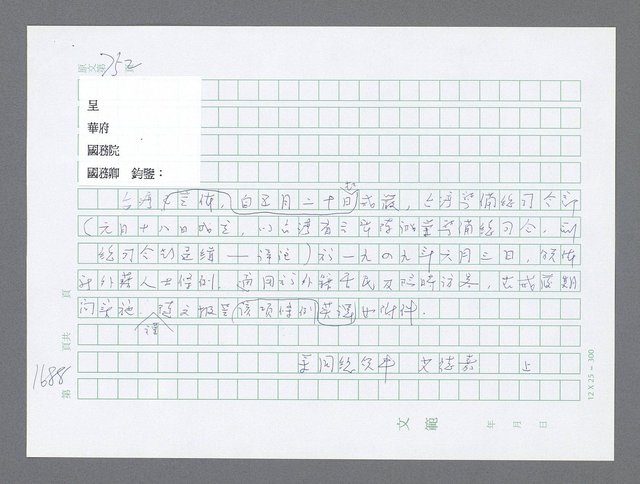 原文第 752 頁
呈
華府
國務院
國務卿 鈞鑒：
台灣 宣佈，自五月二十日起戒嚴，台灣警備總司令部
（元月十八日成立，以台灣省主席陳誠兼警備總司令，副
總司令彭孟緝——譯註）於一九四九年六月三日，頒佈
外籍人士條例，適用於外籍居民及臨時訪客，在戒嚴期
間實施，謹 文報呈該項條例英譯如附件。
美國總領事 艾德嘉 上
頁
頁共
1688
第
12 X 25 - 300
文 範 年 月 日